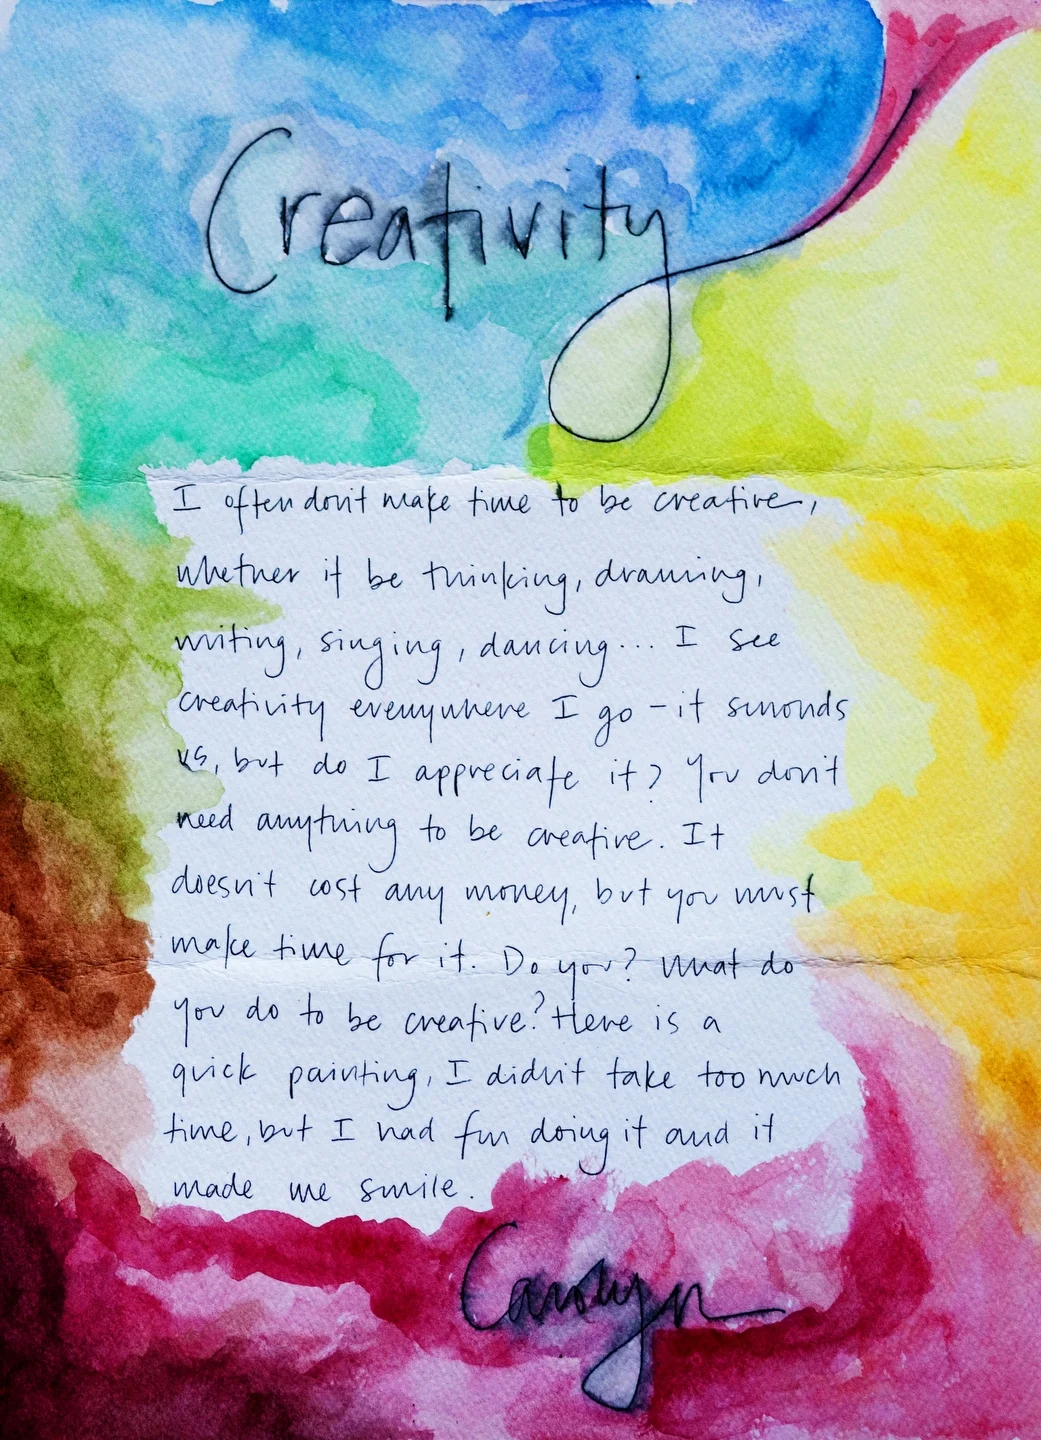 Creativity
I often don't make time to be creative,
whether it be thinking, drawing,
writing, singing, dancing... I see
creativity everywhere I go - it surronds
us, but do I appreciate it? You don't
need anything to be creative. It
doesn't cost any money, but you must
make time for it. Do you? What do
you do to be creative? Here is a
quick painting, I didn't take too much
time, but I had fun doing it and it
made me smile.
Carolyn